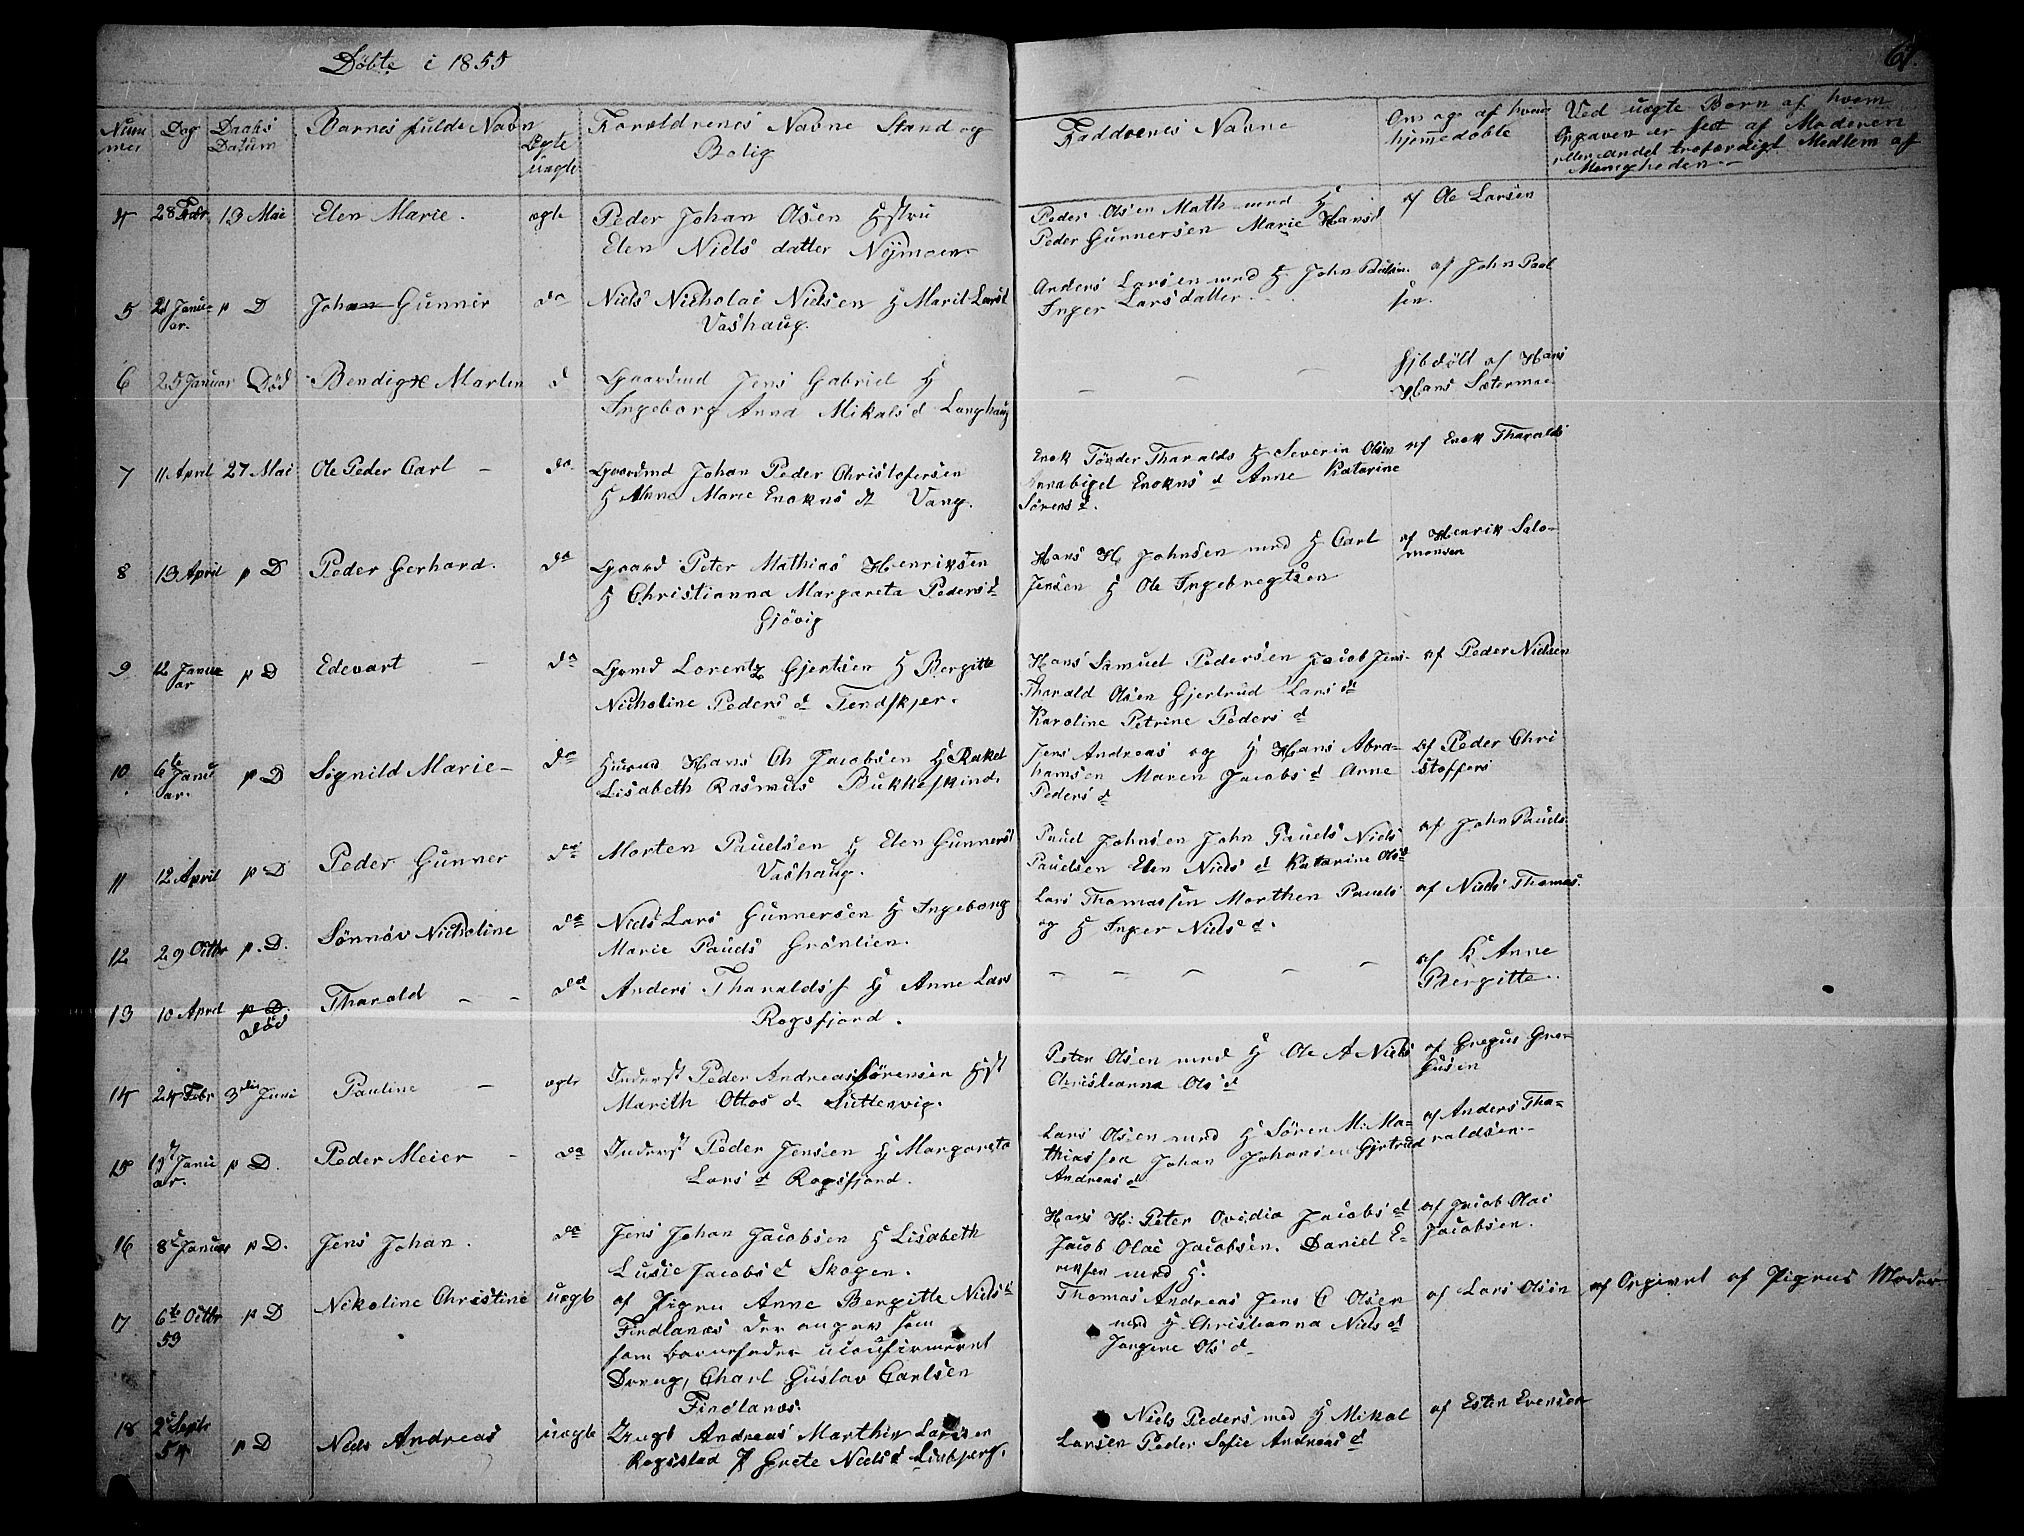 Døbte i 1855
67.
Num mer
Dag
Daabs Datum
Barnes fulde Navn
Ægte uægte
Foreldrenes Navne Stand og Bolig
Faddernes Navne
Om og af hvem hjemedøbte
Ved uægte Barn af hvem
Opgaven er skeet af Moderen
eller andet troværdigt Medlem af
Menigheden
4 28 Febr 13 Mai Elen Marie. ægte Peder Johan Olsen Hstru
Elen Niels datter Nymoen
Peder Olsen Math med H
Peder Gunnersen Marie Hansd
af Ole Larsen
5 21 Janu- ar. p D Johan Gunner do Niels Nicholai Nielsen H Marit Larsd
Vashaug.
Anders Larsen med H. John Paulsen
Inger Larsdatter.
af John Paul
sen.
6 25 Januar Död Bendigte Martin d Gaardmd Jens Gabriel H
Ingeborg Anna Mikalsd Langhaug
– – – –
Hjbdöbt af Hans
Hans Sætermoe
7 11 April 27 Mai Ole Peder Carl – do Gaardmd Johan Peder Christofersen
H Anne Marie Enokns dt Vang.
Enok Tönder Tharalds H Severin Olsen
Annabigel Enokns d Anne Katarine
Sörens d.
af Enok Tharalds
8 13 April p D Peder Gerhard. do Gaard Peter Mathias Henriksen
H Christianna Margareta Pedersd
Gjövig
Hans H Johnsen med H Carl
Jensen H Ole Ingebregtsen
af Henrik Salo-
monsen
9 12 Janu ar p D Edevart – do Gmd Lorentz Gjertsen H Bergitte
Nicholine Peders d Tendskjer.
Hans Samuel Pedersen Jacob Jens-
Tharald Olsen Gjertrud Lars d
Karoline Petrine Peders d
af Peder Nielsen
10 6te Janu ar. p D Signild Marie – do Husmd Hans Ch Jacobsen H Rakel
Lisabeth Rasmus Bukkeskind.
Jens Andreas og H Hans Abra-
hamsen Maren Jacobs d Anne
Peders d
af Peder Chri
stoffers
11 12 April p D Peder Gunner do Morten Paulsen H Elen Gunnersd
Vashaug.
Paul Johnsen John Pauls Niels
Paulsen Elen Niels d Katarine Olsd
af John Pauls
12 29 Octbr p. D. Sönnöv Nicholine do Niels Lars Gunnersen H Ingeborg
Marie Pauls Grönlien.
Lars Thomassen Morthen Pauls
og H Inger Niels d.
af Niels Thomas.
13 10 April p D. död Tharald – – do Anders Tharaldss H Anne Lars
Rogsfjord.
– – – – –
af K Anne
Bergitte.
14 24 Febr 3die Juni Pauline – ægte Inderst Peder Andreas Sörensen Hst
Marith Ottos d Suttervig.
Peter Olsen med H Ole A Niels
Christianna Ols d
af Gregus Gre-
gusen
15 19 Janu ar. p D. Peder Meier – do Inderst Peder Jensen H Margareta
Lars d Rogsfjord.
Lars Olsen med H Sören M: Ma-
thiassen Johan Johansen Gjertrud
Andreas d
af Anders Tha-
raldsen.
16 8de Januar p D. Jens Johan. do Jens Johan Jacobsen H Lisabeth
Lusie Jacobs d Skogen.
Hans H: Peter Ovidia Jacobs d
Jacob Olai Jacobsen. Daniel E-
riksen med H.
af Jacob Olai
Jacobsen.
17 6te Octbr 53 p D Nikoline Christine uægte af Pigen Anne Bergitte Niels d
Findlanæs der angav som
som barnefader uconfirmeret
Dreng, Charl Gustav Carlsen
Findlanæs
Thomas Andreas Jens C Olsen
med H Christianna Niels d
Jorgine Ols d
af Lars Olsen
af Orgivet af Pigens Moder
18 2 Septbr 54 p D Niels Andreas uægte Ungk Andreas Marthin Larsen
Rogsstad P Grete Niels d Linbjerg.
Niels Peders med H Mikal
Larsen Peder Sofie Andreas d
af Esten Evensen